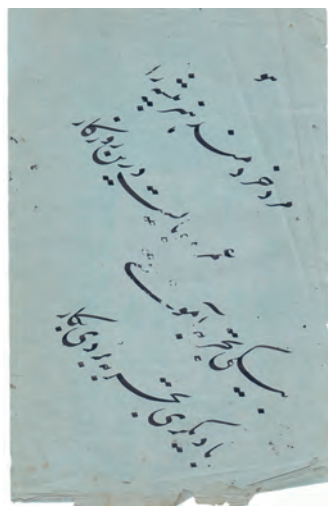 هو
مرد خردمند هنر پیشه را
عمر دو بایست درین روزگار
تا بیکی تجربه آموختی
با دیگری تجربه بردی بکار